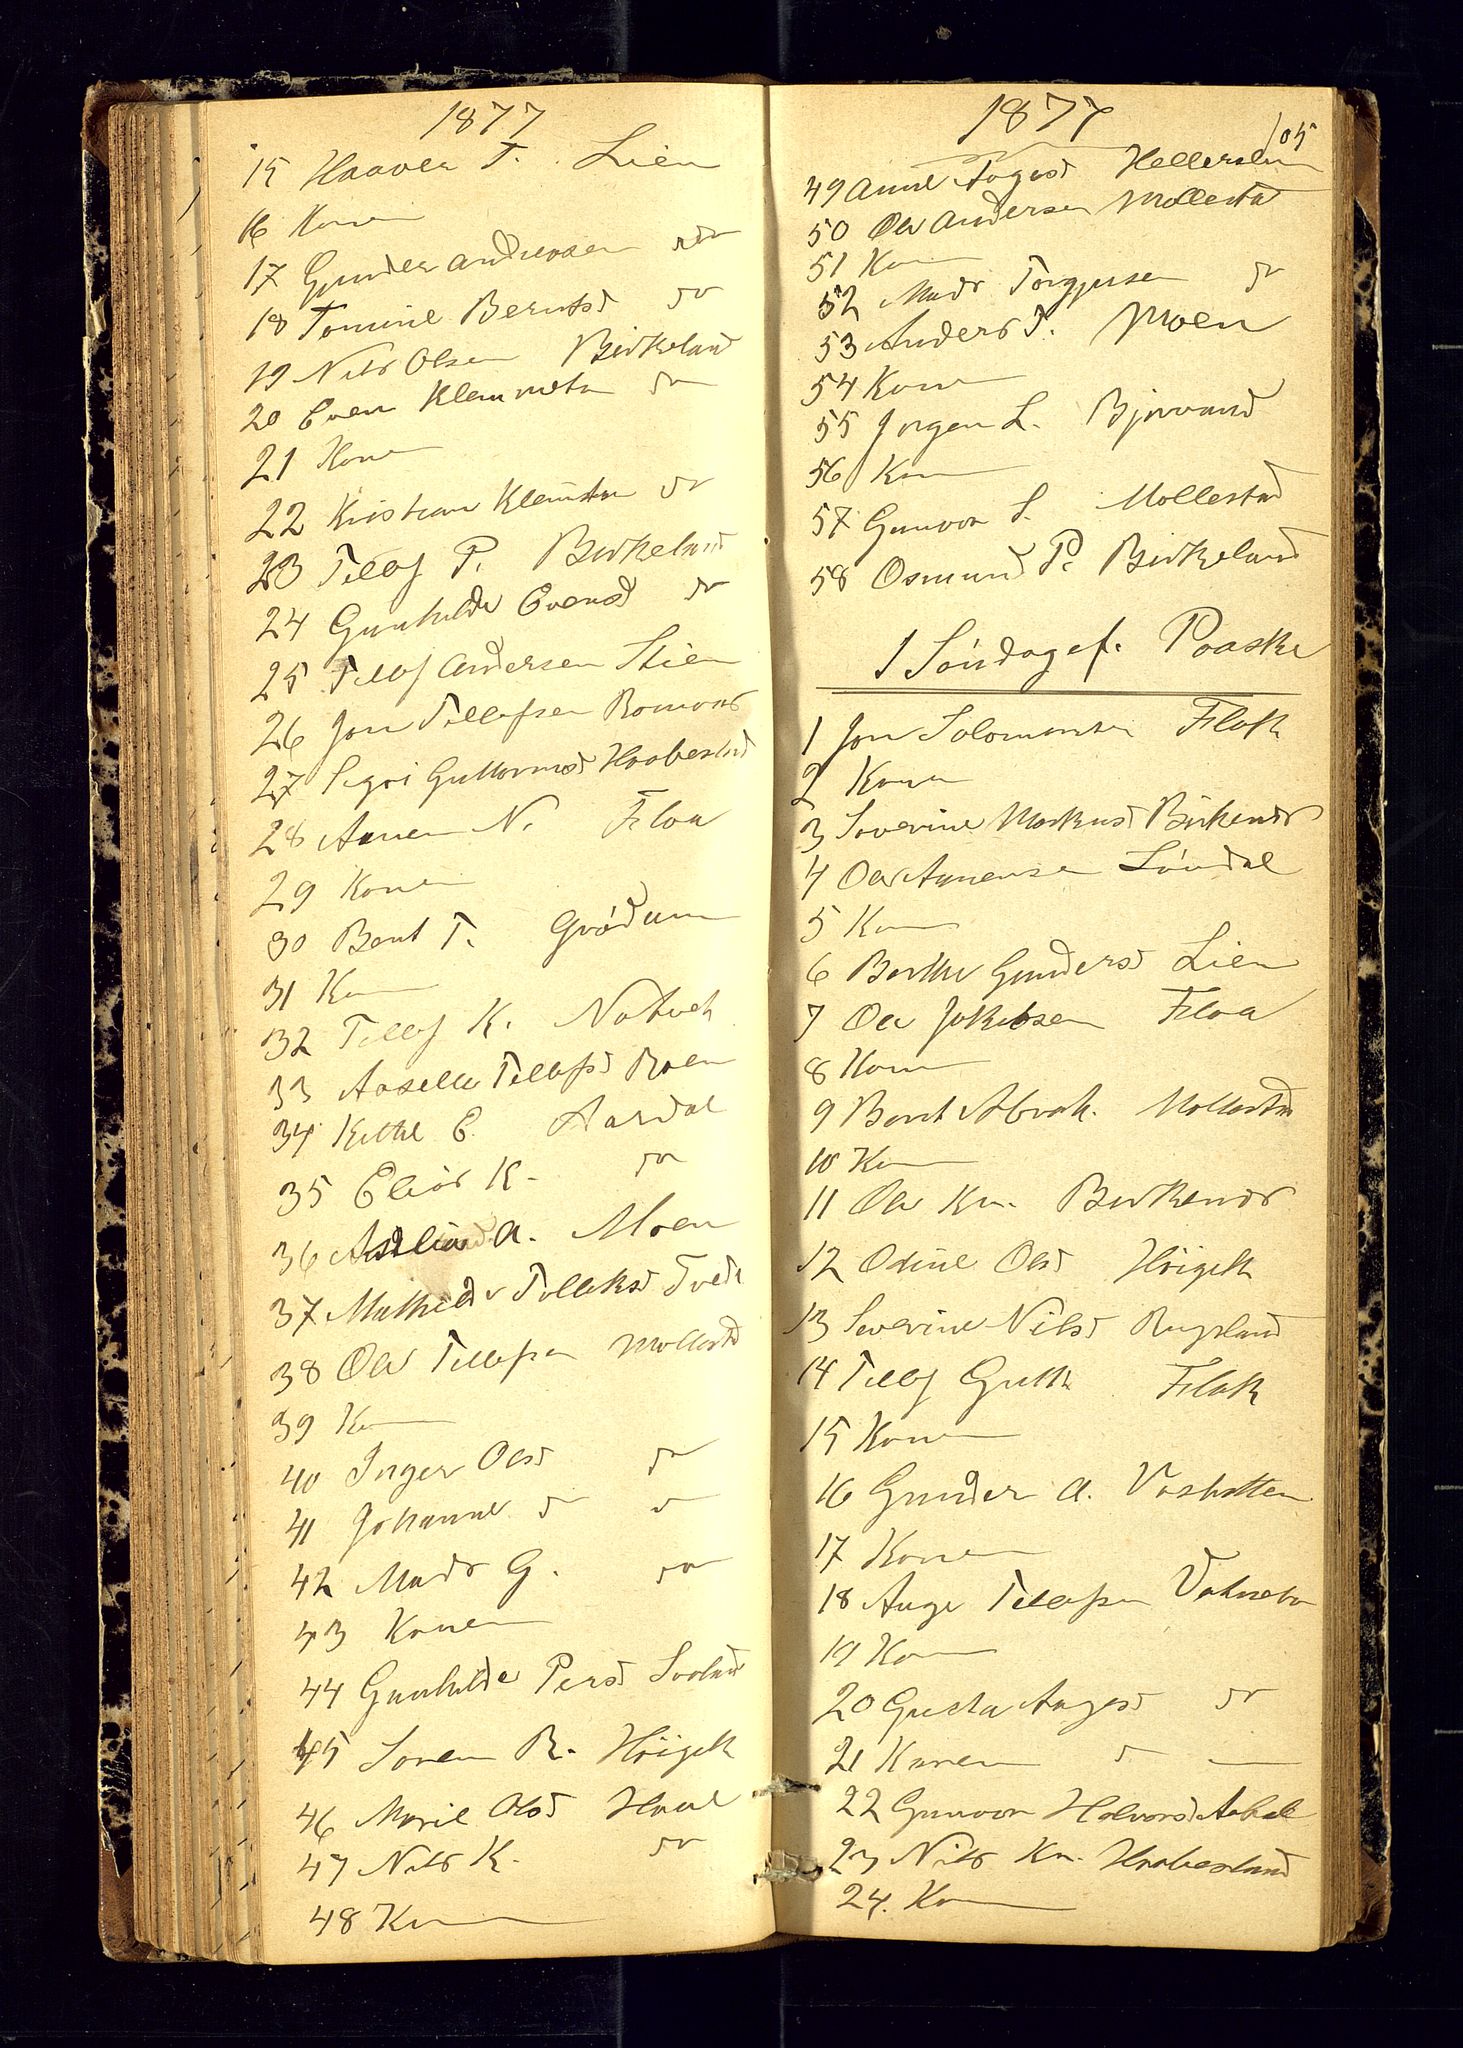 1877
15 Haaver T. Lien
16 Konen
17 Gunder Andersen do
18 Tomine Berntsd do
19 Nils Olsen Birkeland
20 Even Klemmetsn do
21 Konen
22 Kristian Klemtsn do
23 Tellef P. Birkeland
24 Gunhilde Evensd do
25 Tellef Andersen Stien
26 Jon Tellefsen
27 Sigri Guttormsd Haabesland
28 Aanen N. Floa
29 Konen
30 Bent T. Grødum
31 Kn
32 Tellef K.
33 Aaselle Tellefsd Roen
34 Kittel E. Aardal
35 K. do
36 A. Moen
37 Mathilde Tollaksd Tvede
38 Ole Tellefsen Mollestd
39 Kn
40 Inger Olsd do
41 Johanne d d
42 Mads G. do
43 Konen
44 Gunhilde Persd
45 Soren R. Höigelt
46 Marie Olsd
47 Nils K. do
48 Kn
1877
105
49 Anne Aagesd
50 Ole Andersen Mollestad
51 Kn
52 Mads Torgjusen do
53 Anders T. Moen
54 Konen
55 Jorgen L. Bjorvand
56 Kn
57 Gunvor S. Mollestad
58 Osmund P. Birkeland
1 Söndag ef. Paaske
1 Jon Solomonsen Flak
2 Konen
3 Severine Markusd Birkenes
4 Ole Aanensen Söndal
5 Kn
6 Berthe Gundersd Lien
7 Ole Jakobsen Floa
8 Konn
9 Bent Abrah. Mollestad
10 Kn
11 Ole Kn. Birkenes
12 Odine Olsd Höigelt
13 Severine Nilsd Rugsland
14 Tellef Gutt Flak
15 Konen
16 Gunder A.
17 Konen
18 Aage Tellefsen
19 Kon
20 Gusta Aagesd do
21 Karen d
22 Gunvor Halvorsd
23 Nils Kn. Haabesland
24. Kon